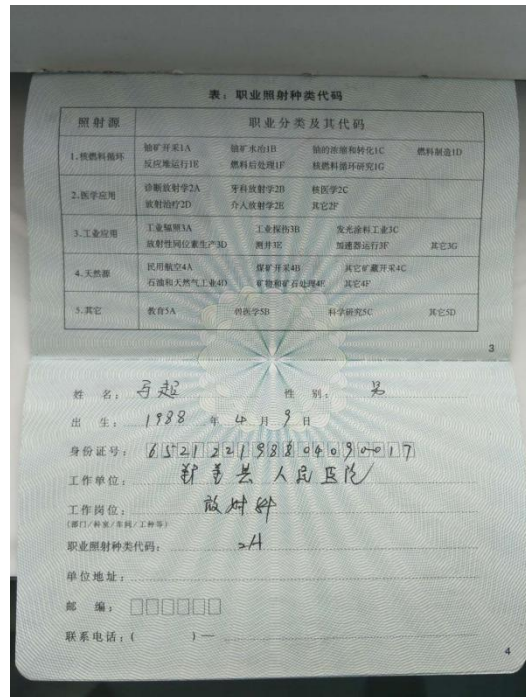 表：职业照射种类代码
照射源 职业分类及其代码
1.核燃料循环 铀矿开采1A 铀矿水冶1B 铀的浓缩和转化1C 燃料制造1D
反应堆运行1E 燃料后处理1F 核燃料循环研究1G
2.医学应用 诊断放射学2A 牙科放射学2B 核医学2C
放射治疗2D 介入放射学2E 其它2F
3.工业应用 工业辐照3A 工业探伤3B 发光涂料工业3C
放射性同位素生产3D 测井3E 加速器运行3F 其它3G
4.天然源 民用航空4A 煤矿开采4B 其它矿藏开采4C
石油和天然气工业4D 矿物和矿石处理4E 其它4F
5.其它 教育5A 兽医学5B 科学研究5C 其它5D
3
姓 名：马起 性 别：男
出 生：1988 年 4 月 9 日
身份证号：652122198804090017
工作单位：鄯善县人民医院
工作岗位：放射科
(部门/科室/车间/工种等)
职业照射种类代码：2A
单位地址：
邮 编：
联系电话：( ) —
4